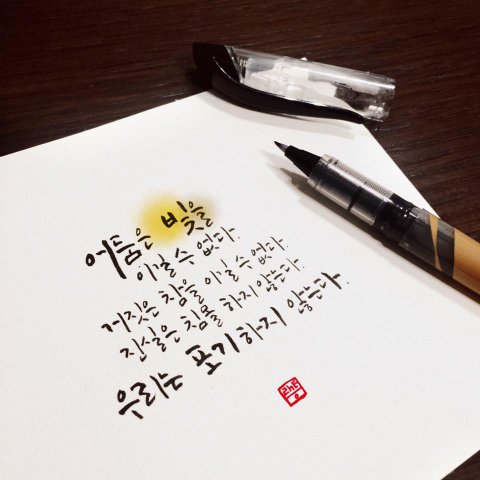 어둠은 빛을
이길 수 없다.
거짓은 참을 이길 수 없다.
진실은 침몰하지 않는다.
우리는 포기하지 않는다.